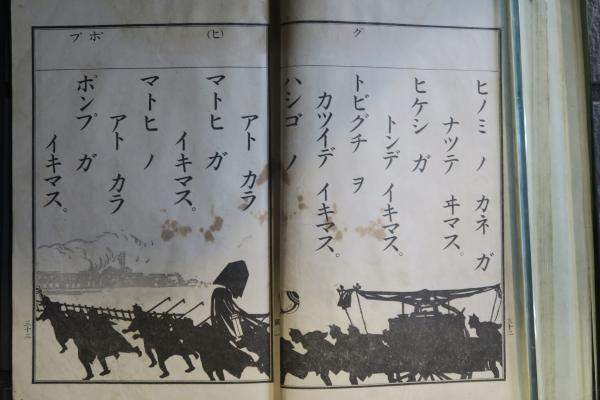 グ
ヒノミ ノ カネ ガ
ナツテ ヰマス。
ヒケシ ガ
トンデ イキマス。
トビグチ ヲ
カツイデ イキマス。
ハシゴ ノ
三十二
(ヒ)
ポ プ
アト カラ
マトヒ ガ
イキマス。
マトヒ ノ
アト カラ
ポンプ ガ
イキマス。
三十三